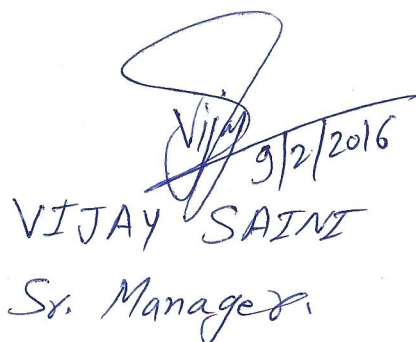 Vijay
9/2/2016
VIJAY SAINI
Sr. Manager.